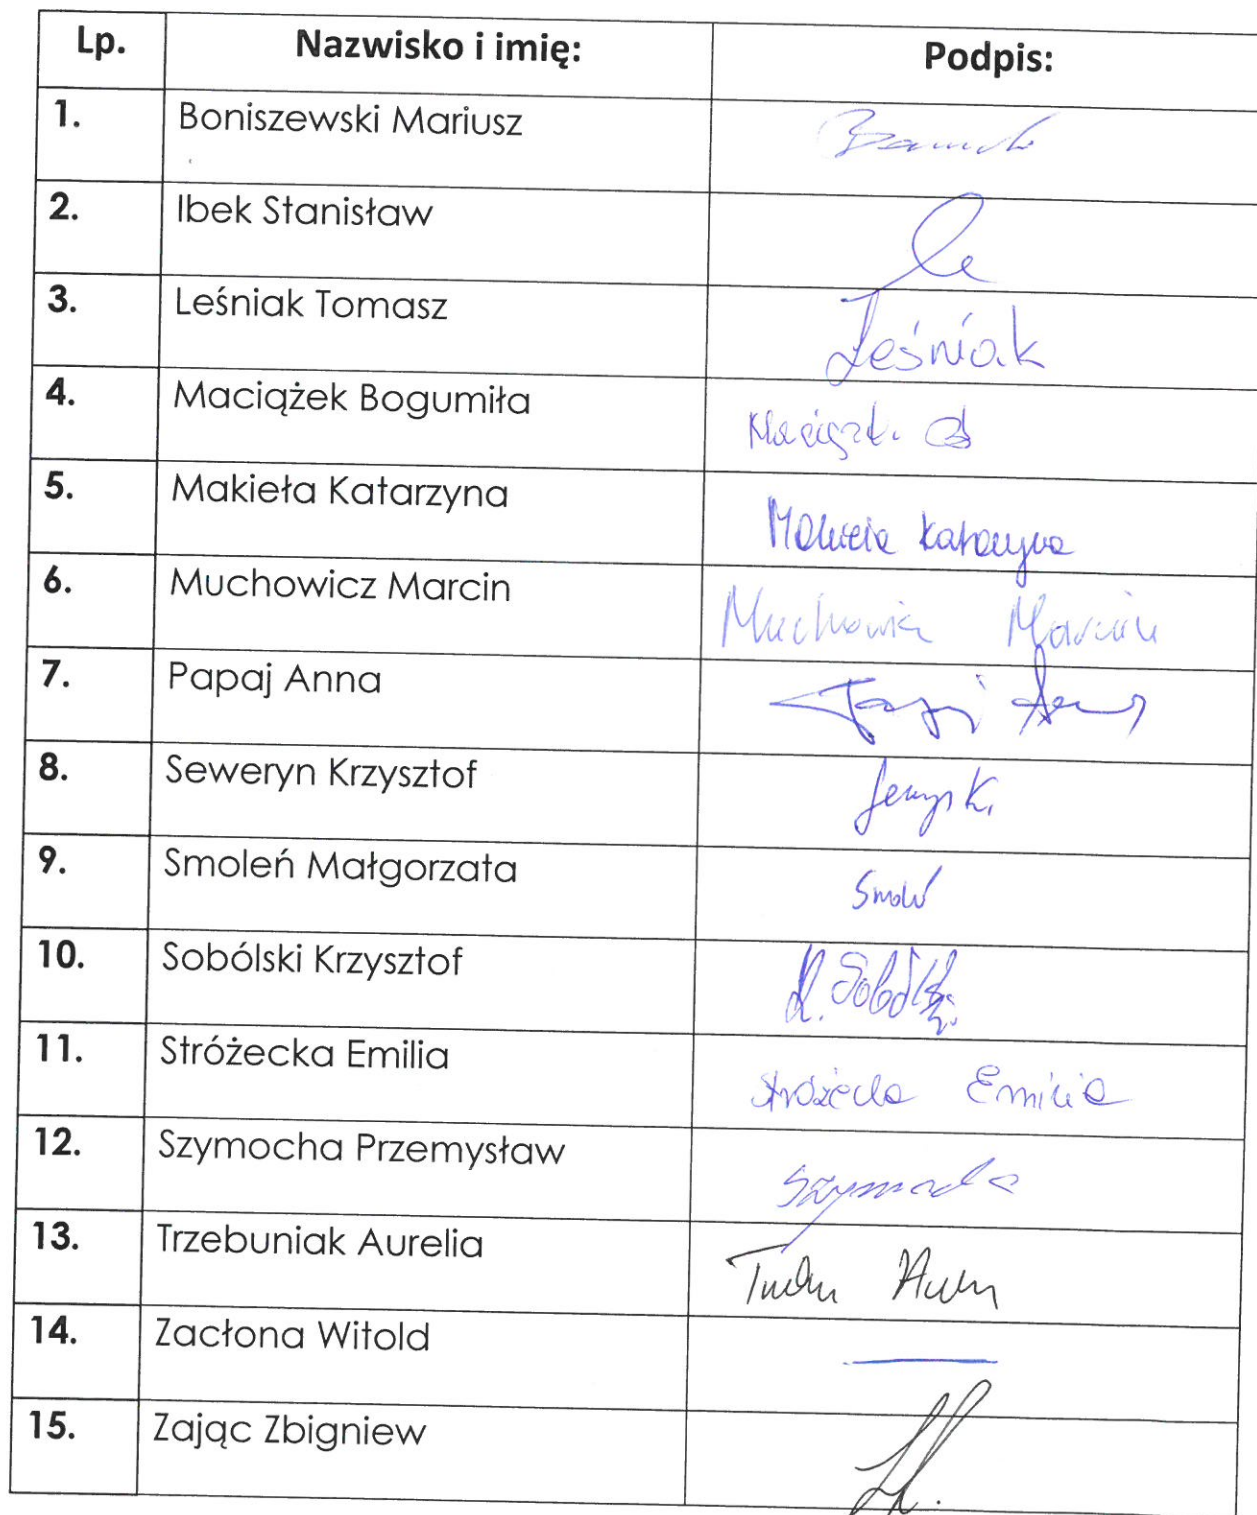 Lp. Nazwisko i imię: Podpis:
1. Boniszewski Mariusz
2. Ibek Stanisław
3. Leśniak Tomasz Leśniak
4. Maciążek Bogumiła
5. Makieła Katarzyna Makieła Katarzyna
6. Muchowicz Marcin Muchowicz Marcin
7. Papaj Anna
8. Seweryn Krzysztof
9. Smoleń Małgorzata
10. Sobólski Krzysztof K. Sobólski
11. Stróżecka Emilia Stróżecka Emilia
12. Szymocha Przemysław Szymocha
13. Trzebuniak Aurelia
14. Zacłona Witold
15. Zając Zbigniew